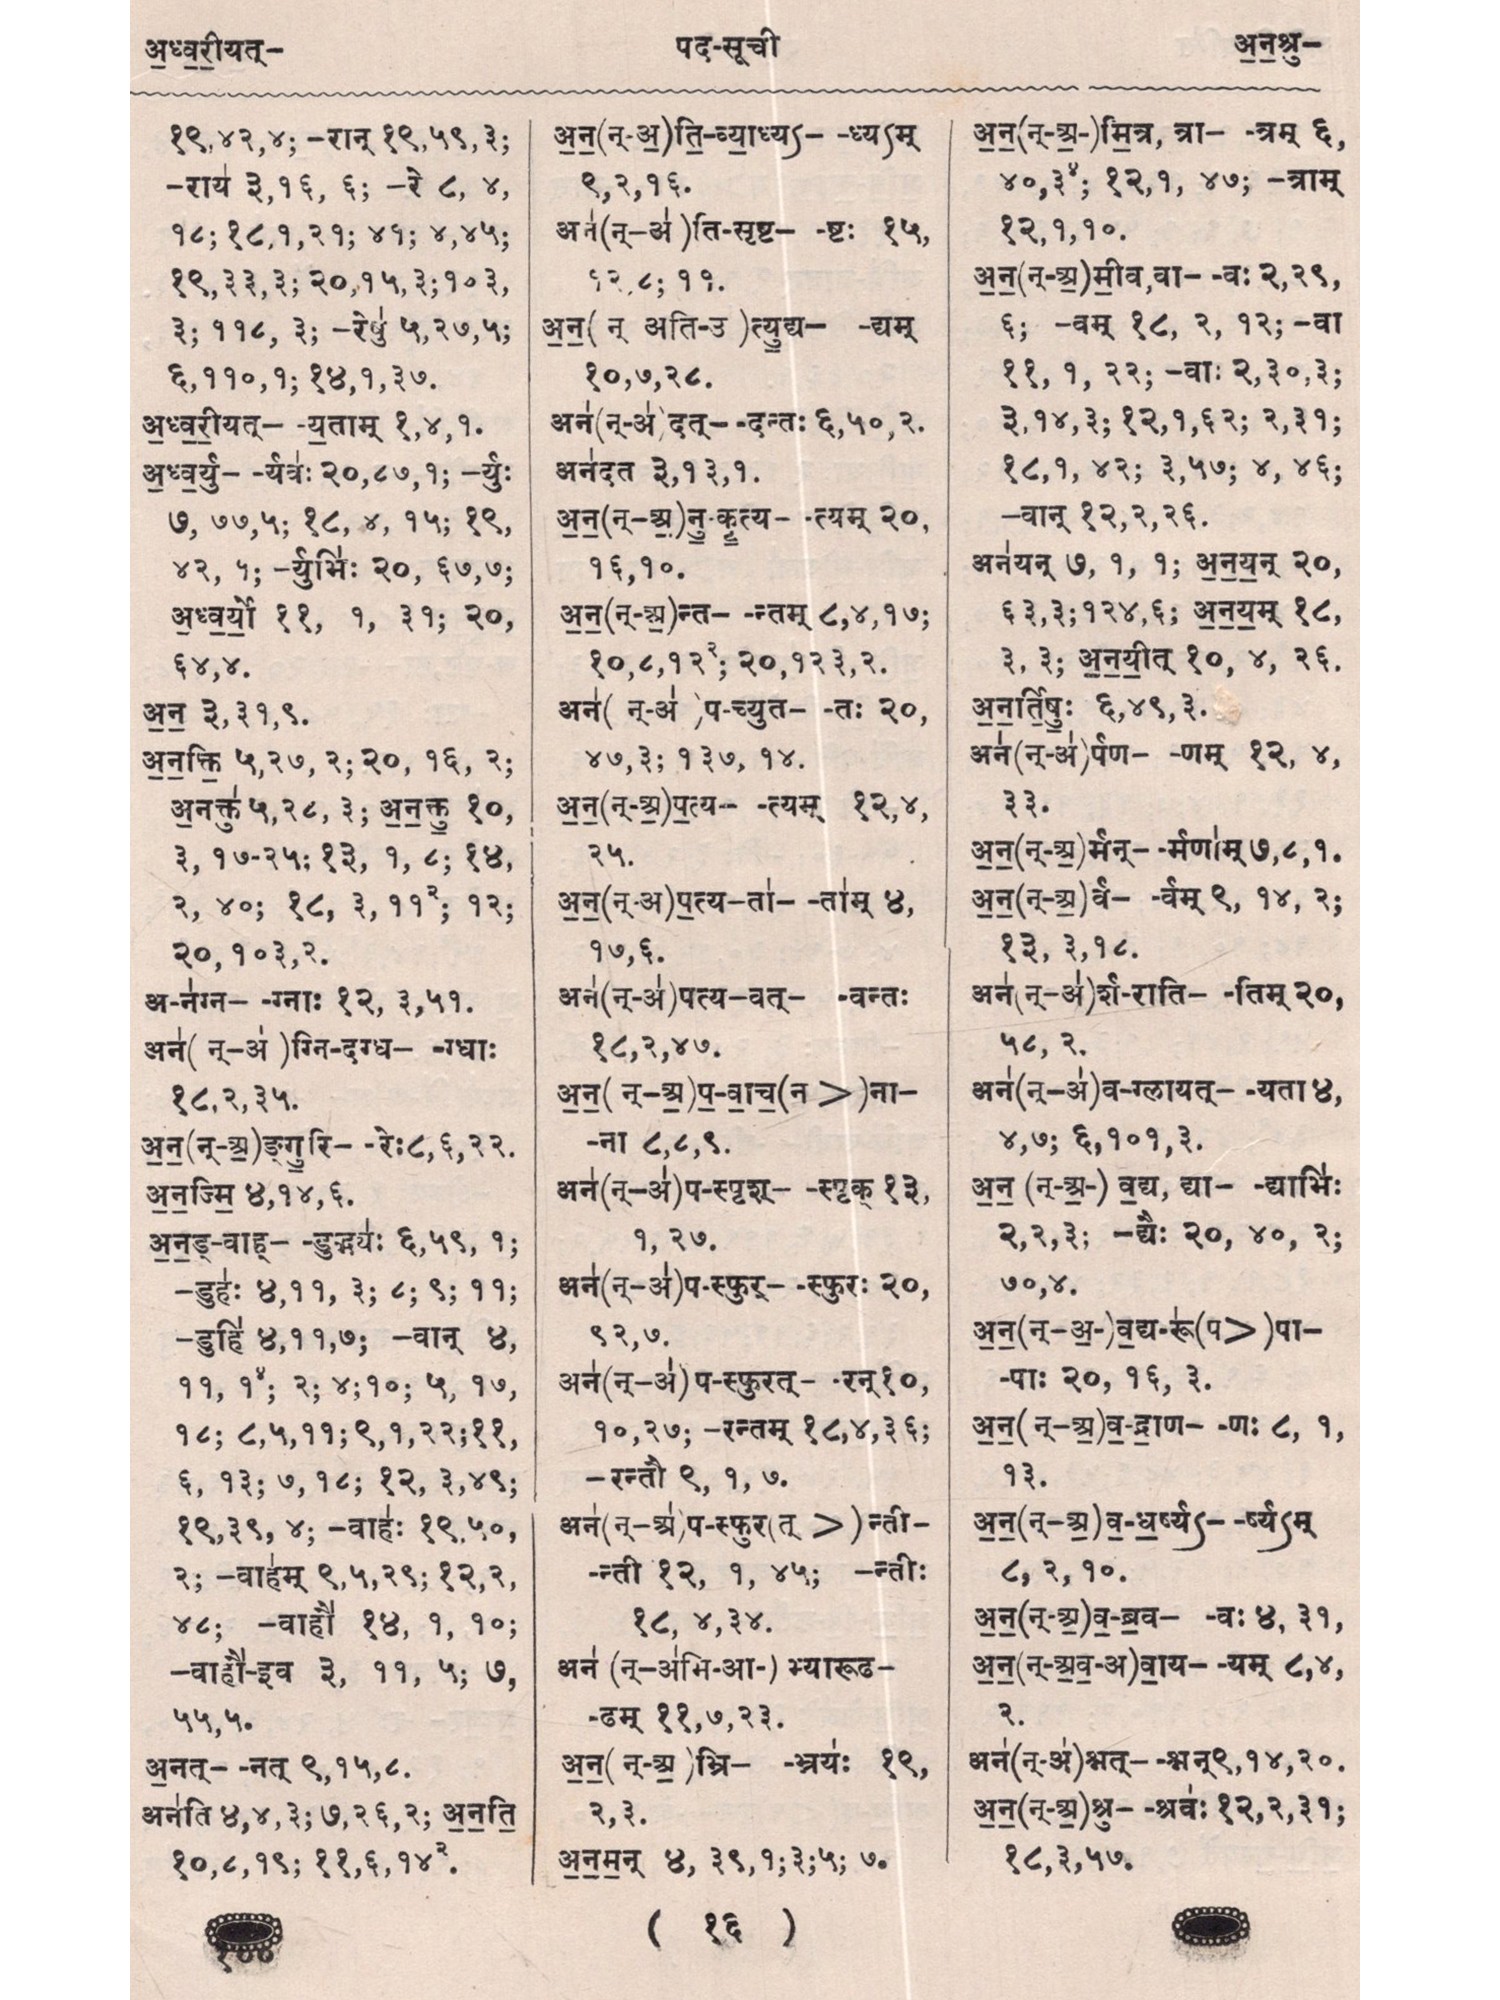 अ॒ध्व॒री॒यत्–
पद-सूची
अ॒न॒श्रु–
१९,४२,४; –रान् १९,५९,३;
–राय॑ ३,१६, ६; –रे ८, ४,
१८; १८,१,२१; ४१; ४,४५;
१९,३३,३; २०,१५,३; १०३,
३; ११८, ३; –रेषु॑ ५,२७,५;
६,११०,१; १४,१,३७.
अ॒ध्व॒री॒यत्– -य॒ताम् १,४,१.
अ॒ध्व॒र्यु– -र्यव॑ः २०,८७,१; –र्युः
७, ७७,५; १८, ४, १५; १९,
४२, ५; –र्युभि॑ः २०, ६७,७;
अ॒ध्व॒र्यो॒ ११, १, ३१; २०,
६४,४.
अ॒न॒ ३,३१,९.
अ॒न॒क्ति॒ ५,२७, २; २०, १६, २;
अ॒नक्तु॑ ५,२८, ३; अ॒न॒क्तु॒ १०,
३, १७-२५; १३, १, ८; १४,
२, ४०; १८, ३, ११²; १२;
२०,१०३,२.
अ-न॑ग्न– -ग्नाः १२, ३,५१.
अन॑( न्–अ॑ )ग्नि-दग्ध– -ग्धाः
१८,२,३५.
अ॒न॒(न्-अ॒)ङ्गु॒रि– -रेः८,६,२२.
अ॒न॒ज्मि॒ ४,१४,६.
अ॒न॒ड्-वाह्– -डुद्भ्य॑ः ६,५९, १;
–डुह॑ः ४,११, ३; ८; ९; ११;
–डुहि॑ ४,११,७; –वान् ४,
११, १⁴; २; ४;१०; ५, १७,
१८; ८,५,११; ९,१,२२;११,
६, १३; ७,१८; १२, ३,४९;
१९,३९, ४; –वाह॑ः १९,५०,
२; –वाह॑म् ९,५,२९; १२,२,
४८; –वाहौ॑ १४, १, १०;
–वाहौ॑-इव ३, ११, ५; ७,
५५,५.
अ॒नत्– -नत् ९,१५,८.
अन॑ति ४,४,३; ७,२६,२; अ॒न॒ति॒
१०,८,१९; ११,६,१४².
अ॒न॒(न्-अ॒)ति॒-व्या॒ध्यऽ– -ध्यऽम्
९,२,१६.
अन॑(न्–अ॑ )ति-सृष्ट– -ष्टः १५,
१२,८; ११.
अ॒न॒( न् अति-उ )त्यु॒द्य– -द्यम्
१०,७,२८.
अन॑(न्-अ॑)दत्– -दन्तः ६,५०,२.
अन॑दत ३,१३,१.
अ॒न॒(न्–अ॒)नु॒-कृ॒त्य– -त्यम् २०,
१६,१०.
अ॒न॒(न्-अ॒)न्त– -न्तम् ८,४,१७;
१०,८,१२²; २०,१२३,२.
अन॑( न्-अ॑ )प-च्युत– -तः २०,
४७,३; १३७, १४.
अ॒न॒(न्-अ॒)प॒त्य– -त्यम् १२,४,
२५.
अ॒न॒(न्-अ)प॒त्य–ता॑– -ता॑म् ४,
१७,६.
अन॑(न्-अ॑)पत्य–वत्– -वन्तः
१८,२,४७.
अ॒न॒( न्–अ॒)प॒-वा॒च॒(न >)ना–
-ना ८,८,९.
अन॑(न्–अ॑)प-स्पृश्– -स्पृक् १३,
१, २७.
अन॑(न्–अ॑)प-स्फुर्– -स्फुरः २०,
९२,७.
अन॑(न्–अ॑)प-स्फुरत्– -रन्१०,
१०,२७; –रन्तम् १८,४,३६;
–रन्तौ ९, १, ७.
अन॑(न्–अ॑)प-स्फुर(त् >)न्ती–
-न्ती १२, १, ४५; –न्तीः
१८, ४,३४.
अन॑ (न्–अ॑भि-आ-) भ्यारूढ–
-ढम् ११,७,२३.
अ॒न॒( न्-अ॒ )भ्रि– -भ्रय॑ः १९,
२,३.
अ॒न॒म॒न् ४, ३९,१;३;५; ७.
अ॒न॒(न्-अ॒-)मि॒त्र, त्रा– -त्रम् ६,
४०,३⁴; १२,१, ४७; –त्राम्
१२,१,१०.
अ॒न॒(न्-अ॒)मी॒व,वा– -वः २,२९,
६; –वम् १८, २, १२; –वा
११, १, २२; –वाः २,३०,३;
३,१४,३; १२,१,६२; २,३१;
१८,१, ४२; ३,५७; ४, ४६;
–वान् १२,२,२६.
अन॑यन् ७, १, १; अ॒न॒य॒न् २०,
६३,३;१२४,६; अ॒न॒य॒म् १८,
३, ३; अ॒न॒यी॒त् १०, ४, २६.
अ॒न॒र्ति॒षुः॒ ६,४९,३.
अन॑(न्-अ॑)र्पण– -णम् १२, ४,
३३.
अ॒न॒(न्-अ॒)र्मन्– -र्मणा॑म् ७,८,१.
अ॒न॒(न्-अ॒)र्व– -र्वम् ९, १४, २;
१३, ३,१८.
अन॑(न्–अ॑)र्श-राति– -तिम् २०,
५८, २.
अन॑(न्–अ॑)व-ग्लायत्– -यता ४,
४,७; ६,१०१,३.
अ॒न॒ (न्-अ॒-) व॒द्य, द्या– -द्याभि॑ः
२,२,३; –द्यैः २०, ४०, २;
७०,४.
अ॒न॒(न्–अ॒-)व॒द्य-रू॑(प>)पा–
-पाः २०, १६, ३.
अ॒न॒( न्–अ॒)व॒-द्रा॒ण– -णः ८, १,
१३.
अ॒न॒(न्–अ॒)व॒-ध॒र्ष्यऽ– -र्ष्यऽम्
८, २, १०.
अ॒न॒(न्-अ॒)व॒-ब्र॒व– -वः ४, ३१,
अ॒न॒(न्-अ॒व॒-अ)वा॒य– -यम् ८,४,
२.
अन॑(न्-अ॑)श्नत्– -श्नन्९,१४,२०.
अ॒न॒(न्-अ॒)श्रु– -श्रव॑ः १२,२,३१;
१८,३,५७.
( १६ )
१००